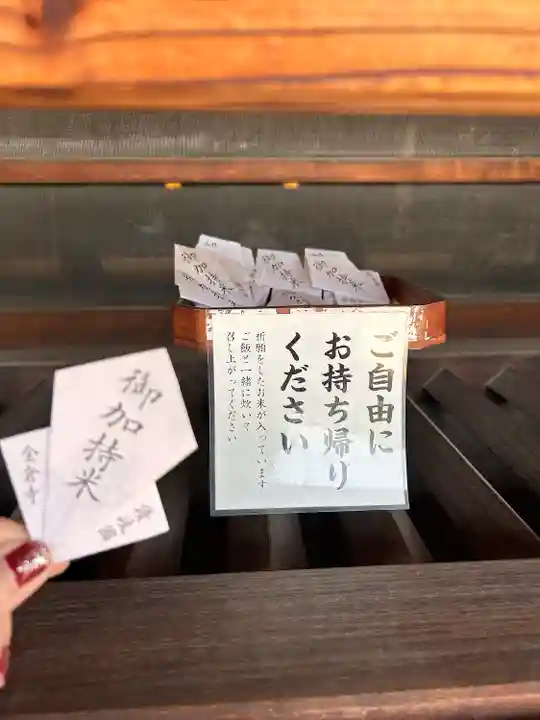 ご自由に
お持ち帰り
ください
祈願をしたお米が入っています
ご飯と一緒に炊いて
召し上がってください
御加持米
御加持米
御加持米
御加持米
金倉寺